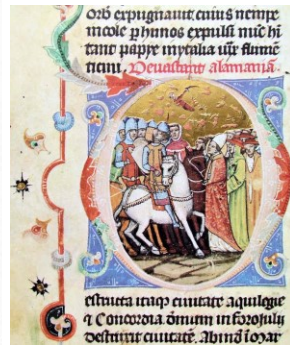 orb expugnauit cuius nempe
incole p hunos expulsi nūc hi
tant papye in ytalia
ticini. Deuastant alamaniā.
estructa itaq; ciuitate aquilegie
⁊ Concordia. omnium in forojulij
destruit ciuitatē. Ab